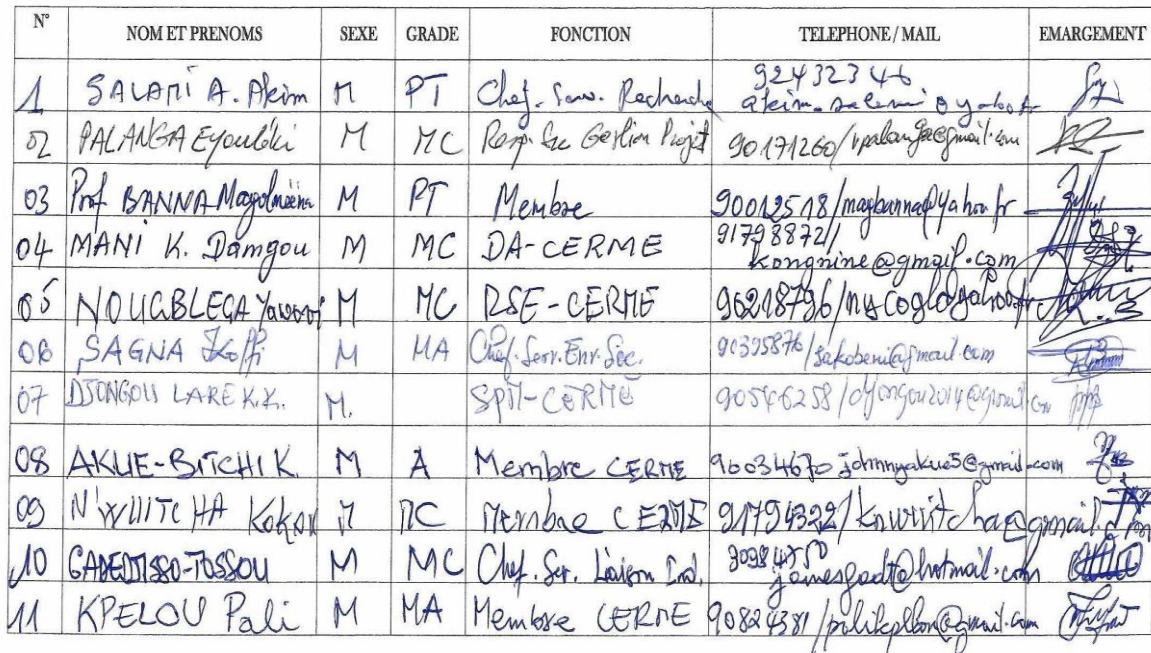 N° NOM ET PRENOMS SEXE GRADE FONCTION TELEPHONE / MAIL EMARGEMENT
1 SALAMI A. Akim M PT Chef. Serv. Recherche 92432346
akim_salami@yahoo.fr
02 PALANGA Eyouléki M MC Resp. Sce Gestion Projet 90171260/vpalanga@gmail.com
03 Prof BANNA Magolmèèna M PT Membre 90012518/magbanna@yahoo.fr
04 MANI K. Damgou M MC DA-CERME 91798872/
kongnine@gmail.com
05 NOUGBLEGA Yawovi M MC RSE-CERME 90218796/
06 SAGNA Koffi M MA Chef. Serv. Env. Séc. 90395876/sakobeni@gmail.com
07 DJONGOU LARE K.K. M. SPM-CERME 90546258/djongou2014@gmail.com
08 AKUE-BITCHI K. M A Membre CERME 90034670 johnnyakue5@gmail.com
09 N'WUITCHA Kokou M MC Membre CERME 91794322/knwuitcha@gmail.com
10 GADEDJISSO-TOSSOU M MC Chef. Ser. Liaison Ind.
jamesgadt@hotmail.com
11 KPELOU Pali M MA Membre CERME 90824381/